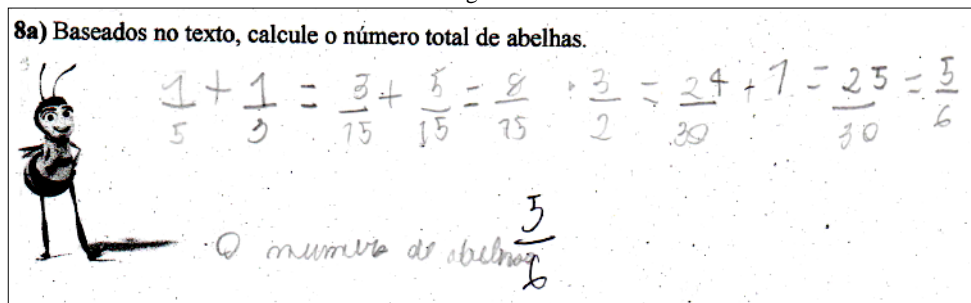 8a) Baseados no texto, calcule o número total de abelhas.
1/5 + 1/3 = 3/15 + 5/15 = 8/15 · 3/2 = 24/30 + 1 = 25/30 = 5/6
O numero de abelhas 5/6